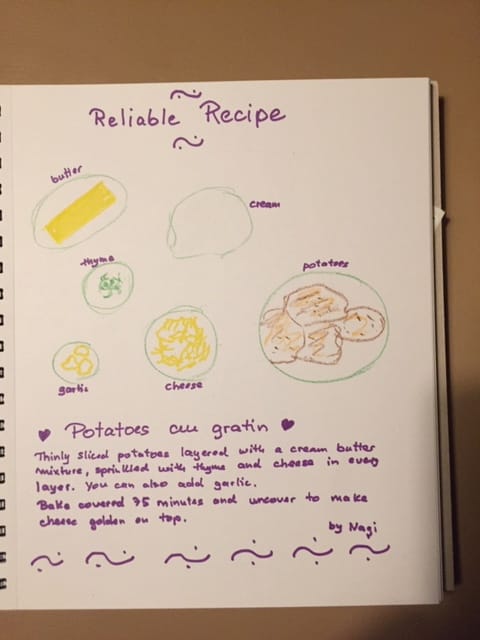 Reliable Recipe
butter
cream
thyme
potatoes
garlic
cheese
Potatoes au gratin
Thinly sliced potatoes layered with a cream butter
mixture, sprinkled with thyme and cheese in every
layer. You can also add garlic.
Bake covered 75 minutes and uncover to make
cheese golden on top.
by Nagi